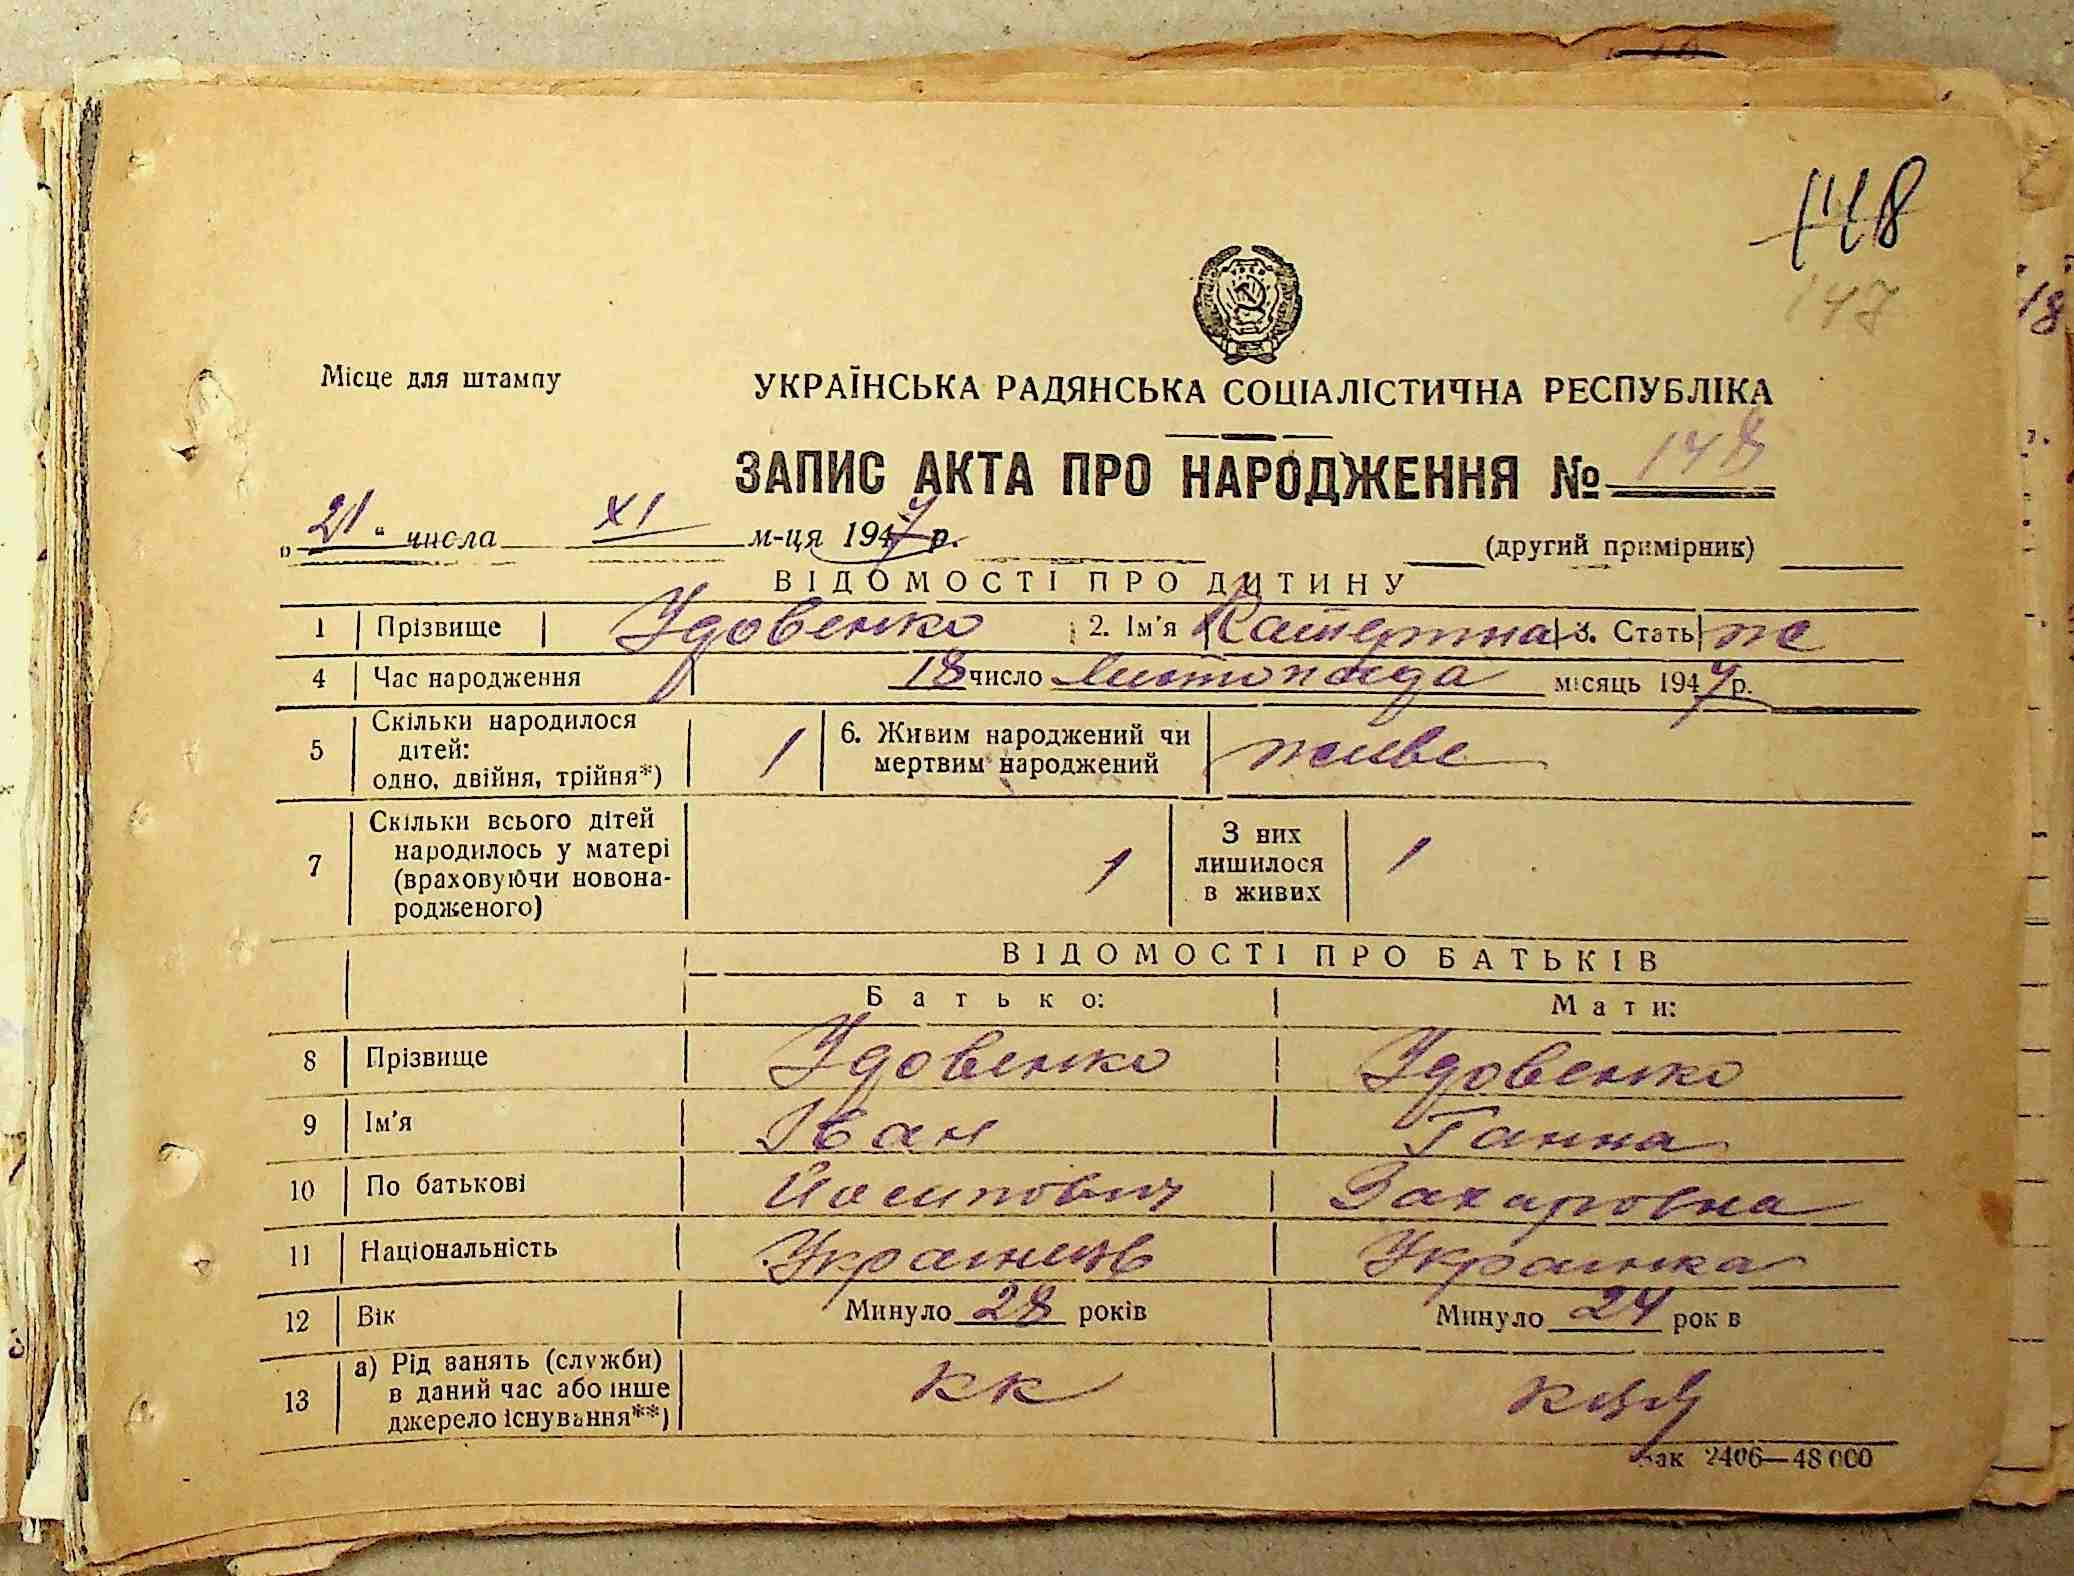 148
147
Місце для штампу
УКРАЇНСЬКА РАДЯНСЬКА СОЦІАЛІСТИЧНА РЕСПУБЛІКА
ЗАПИС АКТА ПРО НАРОДЖЕННЯ № 148
„21“ числа XI м-ця 1947 р.
(другий примірник)
ВІДОМОСТІ ПРО ДИТИНУ
1 Прізвище Удовенко 2. Ім'я Катерина 3. Стать ж
4 Час народження 18 число Листопада місяць 1947 р.
5 Скільки народилося дітей: одно, двійня, трійня*) 1 6. Живим народжений чи мертвим народжений живе
7 Скільки всього дітей народилось у матері (враховуючи новонародженого) 1 З них лишилося в живих 1
ВІДОМОСТІ ПРО БАТЬКІВ
Батько: Мати:
8 Прізвище Удовенко Удовенко
9 Ім'я Іван Ганна
10 По батькові Йосипович Захаровна
11 Національність Українець Украинка
12 Вік Минуло 28 років Минуло 24 рок в
13 а) Рід занять (служби) в даний час або інше джерело існування**) кк
Зак 2406—48 000